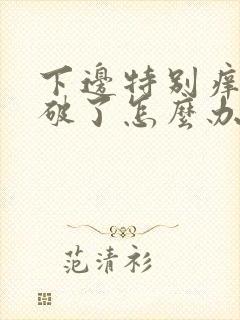 下邊特别癢
破了怎麼办
范清衫